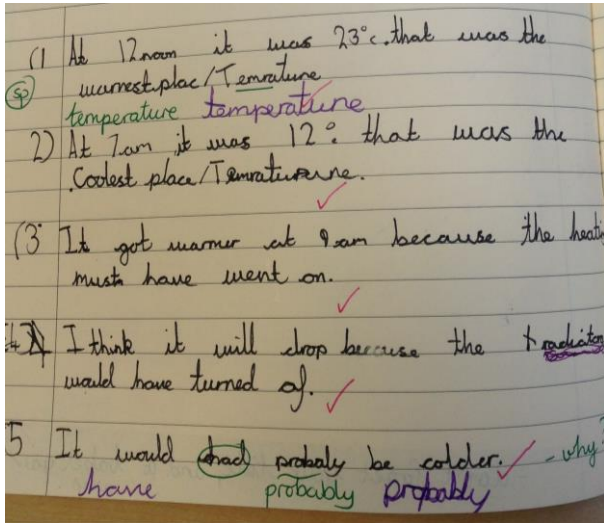 (1 At 12noon it was 23°c. that was the
sp warmest plac/Temrature
temperature temperature
2) At 7am it was 12° that was the
Coolest place/Temraturune.
(3 It got warmer at 9am because the heati
must have went on.
I think it will drop because the radiator
would have turned of.
5 It would had probaly be colder. - why?
have probably probably